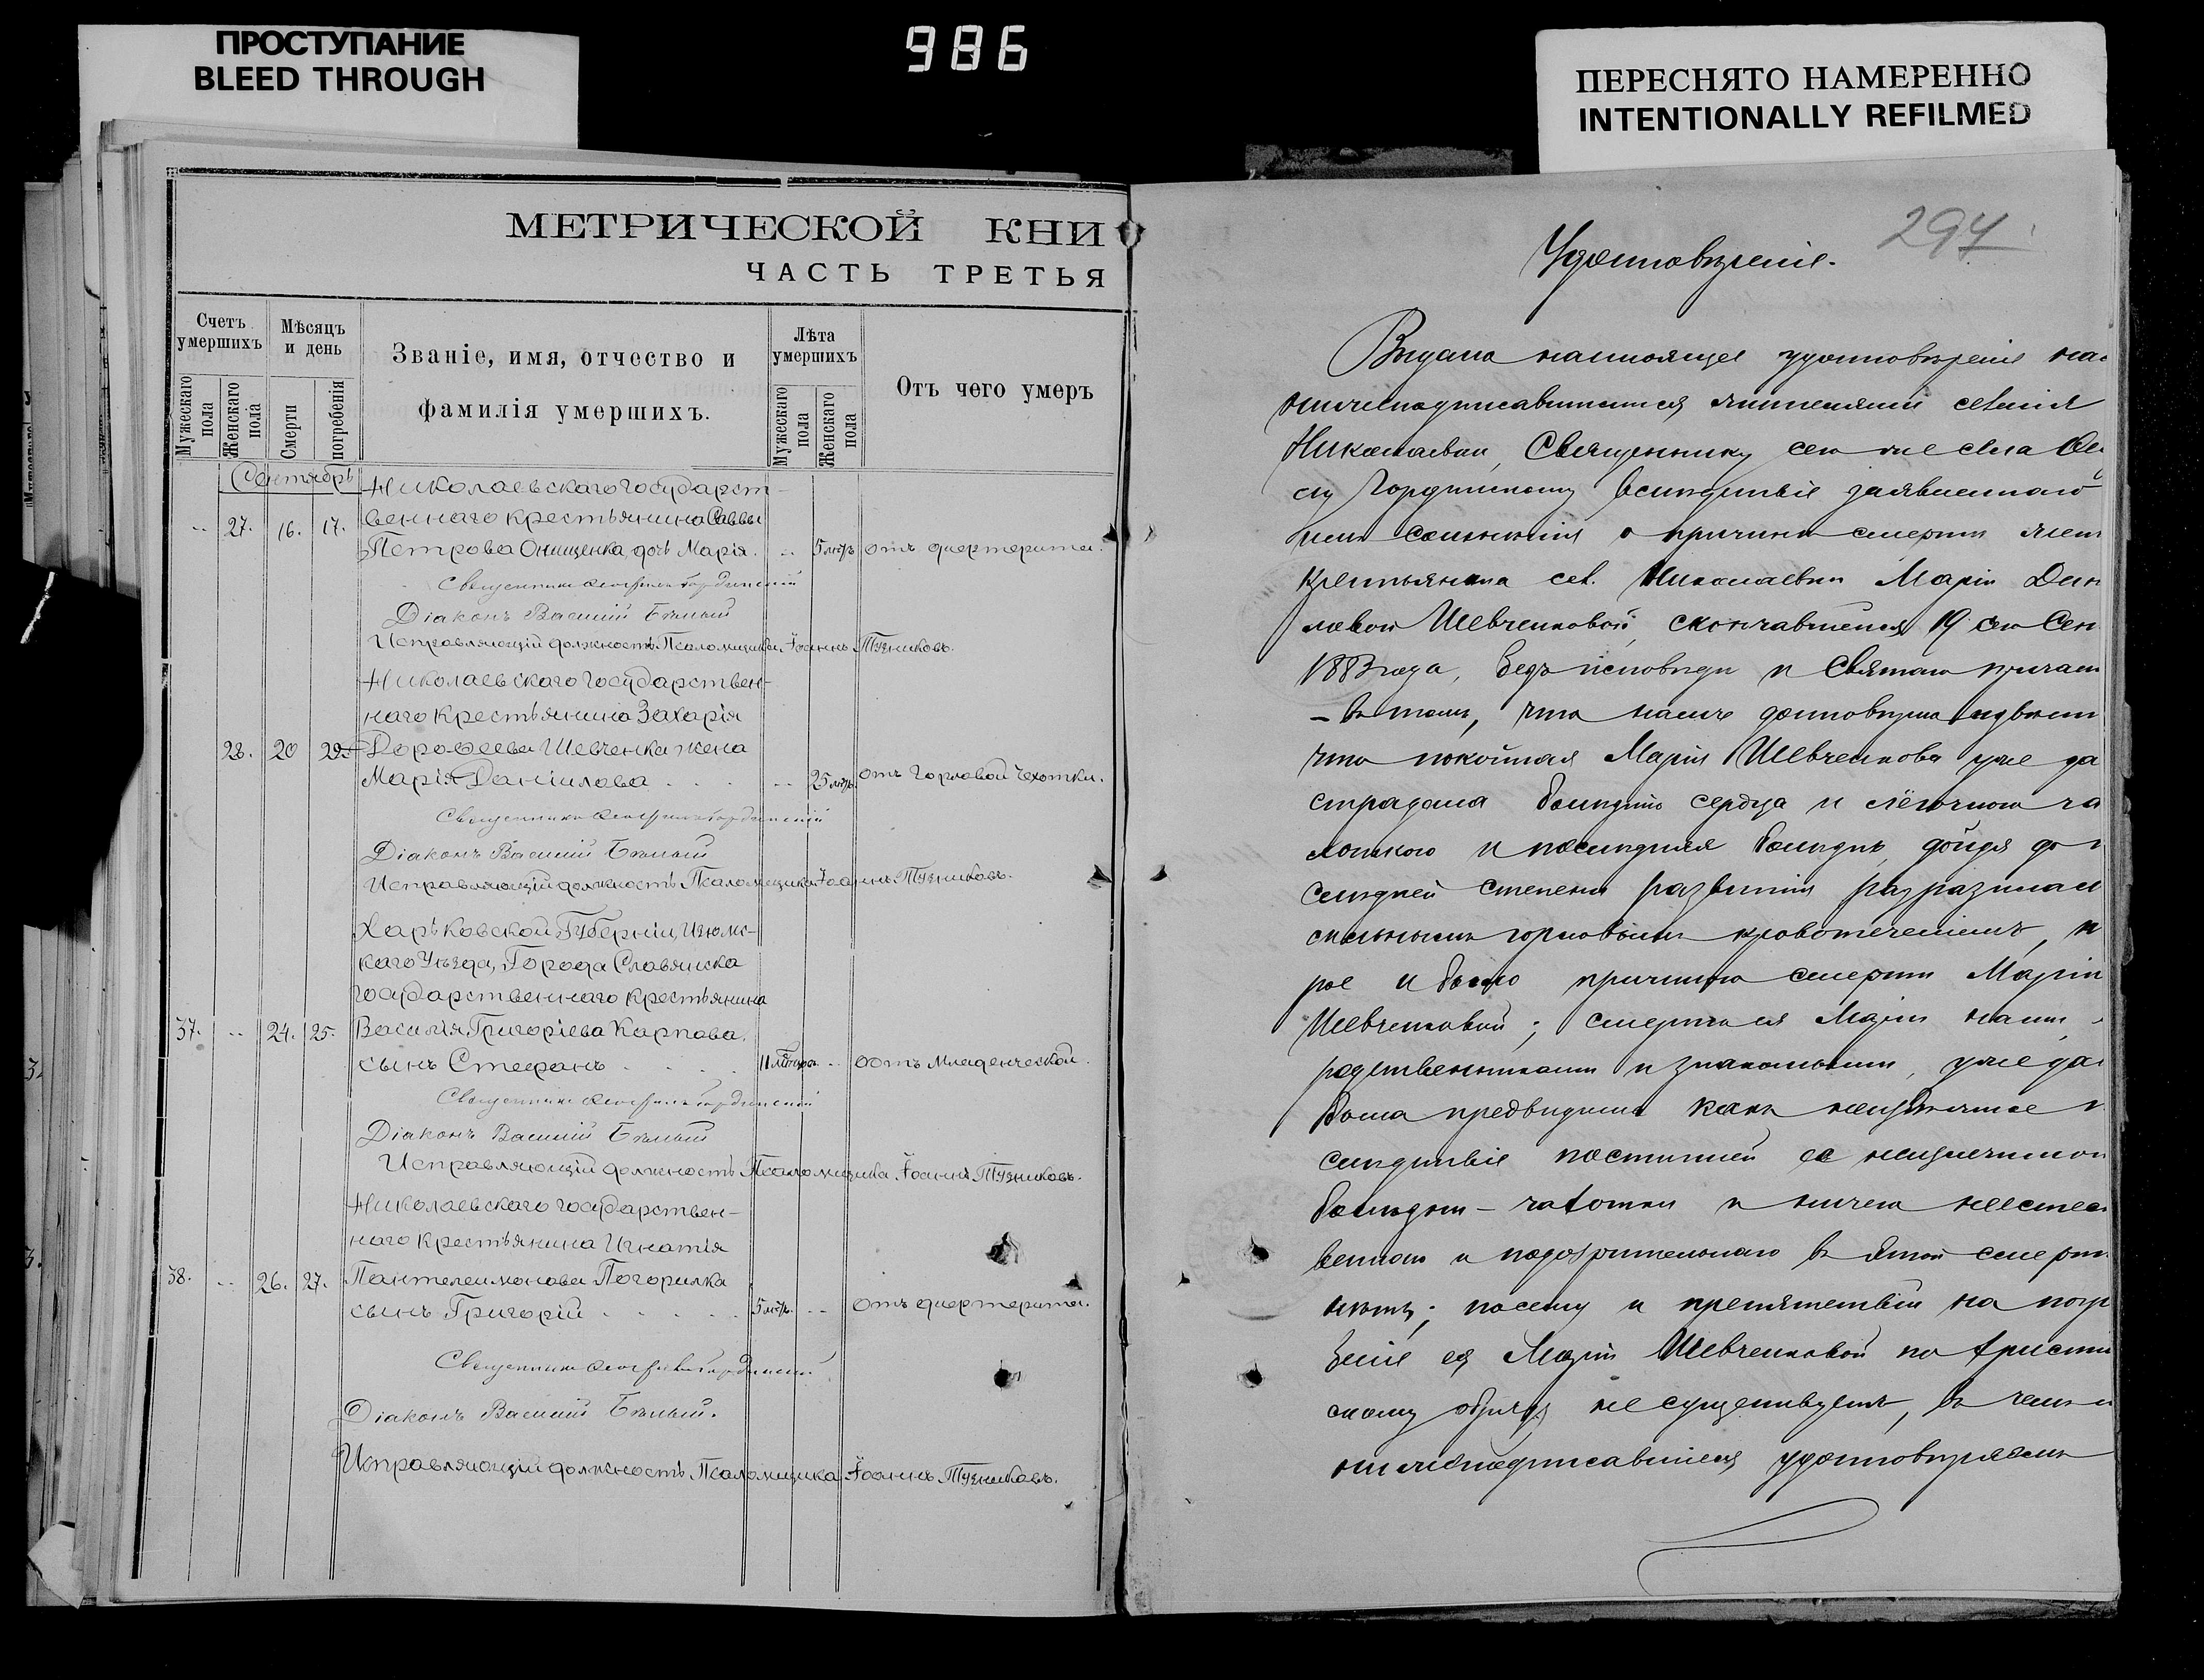 ПРОСТУПАНИЕ
BLEED THROUGH
986
ПЕРЕСНЯТО НАМЕРЕННО
INTENTIONALLY REFILMED
МЕТРИЧЕСКОЙ КНИ
ЧАСТЬ ТРЕТЬЯ
Счетъ умершихъ
Мужескаго пола
Женскаго пола
Мѣсяцъ и день
Смерти
погребенія
Званіе, имя, отчество и
фамилія умершихъ.
Лѣта умершихъ
Мужескаго пола
Женскаго пола
Отъ чего умеръ
Сентябрь
Николаевскаго Государст-
веннаго крестьянина Саввы
27. 16. 17.
Петрова Онищенка, дочь Марія. 5 лѣтъ отъ дифтерита.
Священникъ Гординскій
Діаконъ Василій Бѣлый
Исправляющій должность Псаломщика Іоаннъ
Николаевскаго Государствен-
наго крестьянина Захарія
28. 20 Дорофеева Шевченка жена
Марія Даніилова 25 лѣтъ. отъ горловой чахотки.
Священникъ Гординскій
Діаконъ Василій Бѣлый
Исправляющій должность Псаломщика Іоаннъ
Харьковской Губерніи, Изюмс-
каго Уѣзда, Города Славянска
Государственнаго крестьянина
37. 24. 25. Василія Григоріева Карпова.
сынъ Стефанъ 11 отъ Младенческой.
Священникъ Гординскій
Діаконъ Василій Бѣлый
Исправляющій должность Псаломщика Іоаннъ
Николаевскаго государствен-
наго крестьянина Игнатія
38. 26. 27. Пантелеимонова Погорилка
сынъ Григорій 5 лѣтъ. отъ дифтерита.
Священникъ Гординскій
Діаконъ Василій Бѣлый.
Исправляющій должность Псаломщика Іоаннъ
294
Удостовѣреніе.
Выдано настоящее удостовѣреніе на-
нижеподписавшимися жителями селенія
Николаевки, Священнику сего же села
Гординскому вслѣдствіе заявленнаго
о причинѣ смерти
крестьянина сел. Николаевки Маріи Дані
ловой Шевченковой, скончавшейся 19 Сен
1883 года, безъ исповѣди и Святаго причаст
- въ томъ, что намъ достовѣрно извѣстн
что покойная Марія Шевченкова уже да
страдала болѣзнію сердца и лёгочною ча
и послѣдняя болѣзнь, дойдя до
слѣдней степени развитія разразилась
сильнымъ горловымъ кровотеченіемъ,
рое и было причиною смерти Маріи
Шевченковой; смерть ея Маріи нами,
родственниками и знакомыми, уже дав
была предвидима какъ неизбѣжное
слѣдствіе постигшей ее неизлечимой
болѣзни - чахотки и ничего неестес
веннаго и подозрительнаго въ этой смерти
нѣтъ; посему и препятствій на погр
беніе ея Маріи Шевченковой по христіа
скому обряду не существуетъ, въ чемъ
нижеподписавшіеся удостовѣряемъ